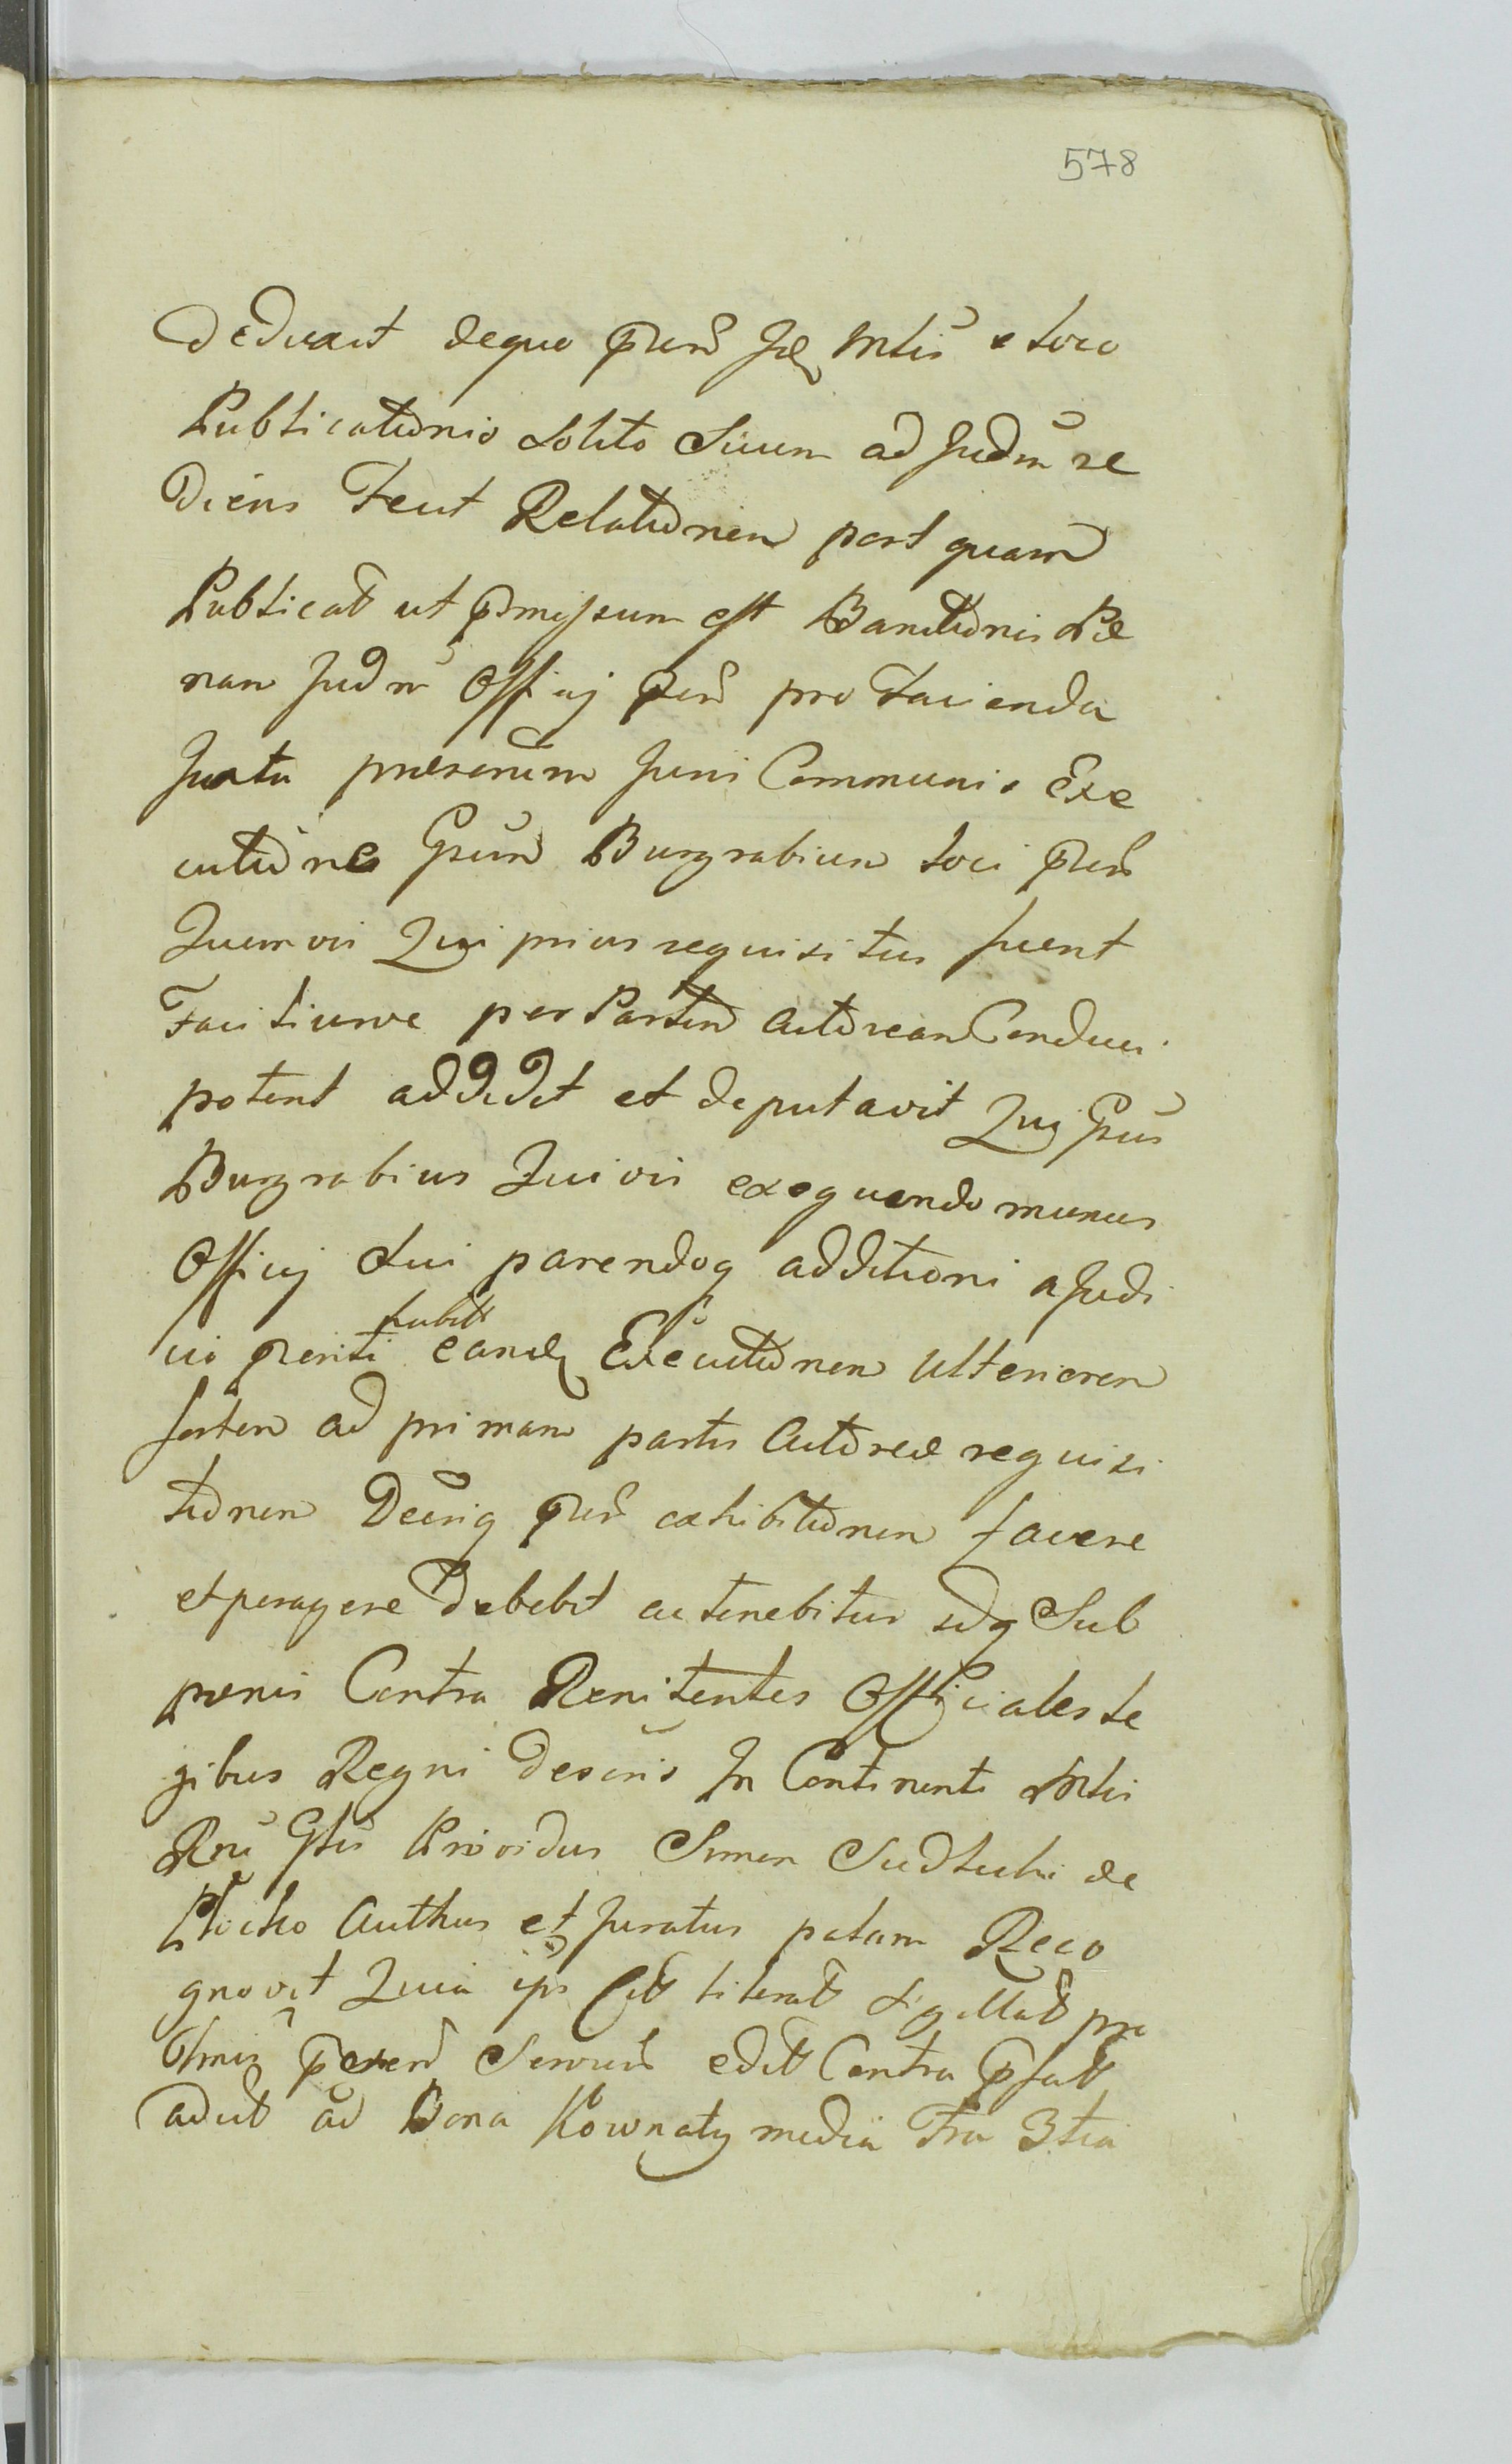 578
Deduxit dequo p̃ens Jd Mlis̃ e loco
Publicationis Solito Suum ad Judm̃ re
diens Fecit Relationem post quam
Publicat̃ ut p̃missum est Banitionis Pæ
nam Judm̃ Officij p̃ens pro Facienda
Juxta præscriptum Juris Communis Exe
cutione Gsum̃ Burgrabium Loci p̃ens
Quemvis Qui prius requisitus fuerit
Faciliusve per Partem Actoream Conduci
poterit addidit et deputavit Qui Gsus̃
Burgrabius Quivis exequendo munus
Officij Sui parendoq additioni a Judi
cio p̃senti eand Executionem Ulteriorem
ad primam partis Actoreæ requisi
tionem Decrìq p̃ens exhibitionem facere
et peragere debebit ac tenebitur idq Sub
pœnis Contra Renitentes Officiales Le
gibus Regni descris̃ In Continenti Mlis
Rni Glis̃ Providus Simon de
Plocko Authus et Juratus palam Reco
gnovit Quia ips literat̃ Sigillat̃ pro
Tmin̄ p̃senti edit Contra p̃fat̃
adcit̃ ad Bona Kownaty media Fra 3tia